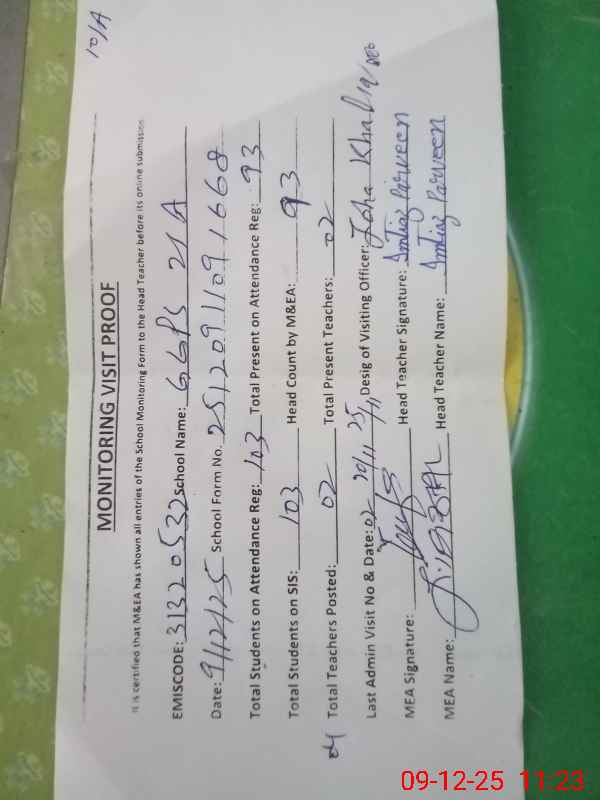 10/A
MONITORING VISIT PROOF
It is certified that M&EA has shown all entries of the School Monitoring Form to the Head Teacher before its online submission
EMISCODE: 31320532 School Name: GGPS 21 A
Date: 9/12/25 School Form No. 25120911091668
Total Students on Attendance Reg: 103 Total Present on Attendance Reg: 93
Total Students on SIS: 103 Head Count by M&EA: 93
04 Total Teachers Posted: 02 Total Present Teachers: 02
Last Admin Visit No & Date: 02 Desig of Visiting Officer:
MEA Signature: Head Teacher Signature: Imtiaz Parveen
MEA Name: Head Teacher Name: Imtiaz Parveen
09-12-25 11:23